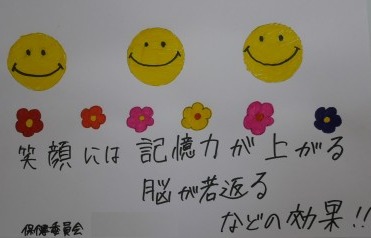 笑顔には 記憶力が上がる
脳が若返る
などの効果!!
保健委員会